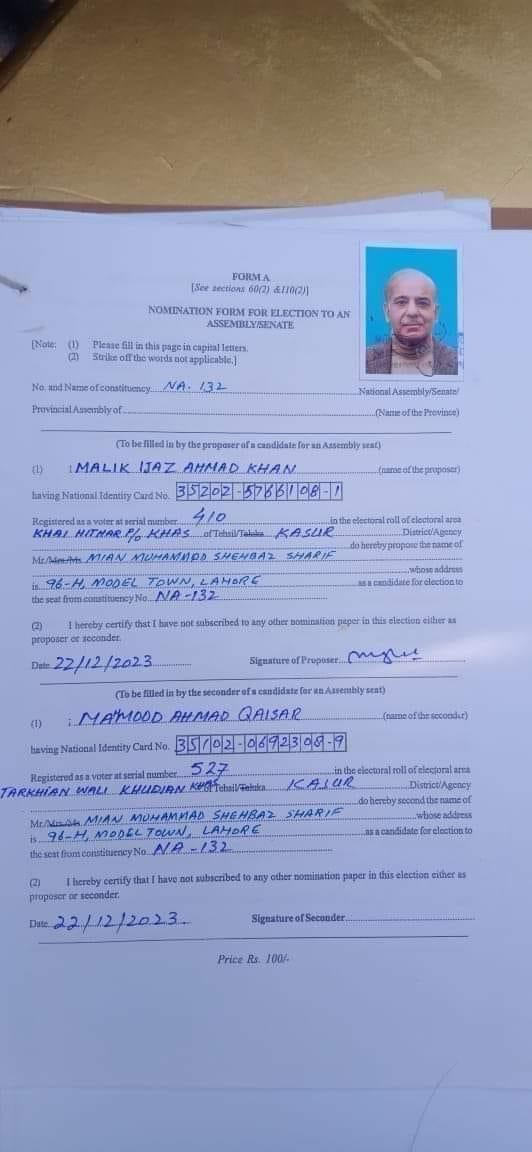 FORM A
[See sections 60(2) &110(2)]
NOMINATION FORM FOR ELECTION TO AN
ASSEMBLY/SENATE
[Note: (1) Please fill in this page in capital letters.
(2) Strike off the words not applicable.]
No. and Name of constituency NA. 132 National Assembly/Senate/
Provincial Assembly of (Name of the Province)
(To be filled in by the proposer of a candidate for an Assembly seat)
(1) : MALIK IJAZ AHMAD KHAN (name of the proposer)
having National Identity Card No. 35202-5766108-1
Registered as a voter at serial number 410 in the electoral roll of electoral area
KHAI HITHAR P/O KHAS of Tehsil/Taluka KASUR District/Agency
do hereby propose the name of
Mr/Mrs/Ms MIAN MUHAMMAD SHEHBAZ SHARIF
whose address
is 96-H, MODEL TOWN, LAHORE as a candidate for election to
the seat from constituency No. NA-132
(2) I hereby certify that I have not subscribed to any other nomination paper in this election either as
proposer or seconder.
Date 22/12/2023 Signature of Proposer
(To be filled in by the seconder of a candidate for an Assembly seat)
(1) : MAMOOD AHMAD QAISAR (name of the seconder)
having National Identity Card No. 35102-0692308-9
Registered as a voter at serial number 527 in the electoral roll of electoral area
TARKHIAN WALI KHUDIAN KHAS of Tehsil/Taluka KASUR District/Agency
do hereby second the name of
Mr/Mrs/Ms MIAN MUHAMMAD SHEHBAZ SHARIF whose address
is 96-H, MODEL TOWN, LAHORE as a candidate for election to
the seat from constituency No. NA-132
(2) I hereby certify that I have not subscribed to any other nomination paper in this election either as
proposer or seconder.
Date 22/12/2023. Signature of Seconder
Price Rs. 100/-